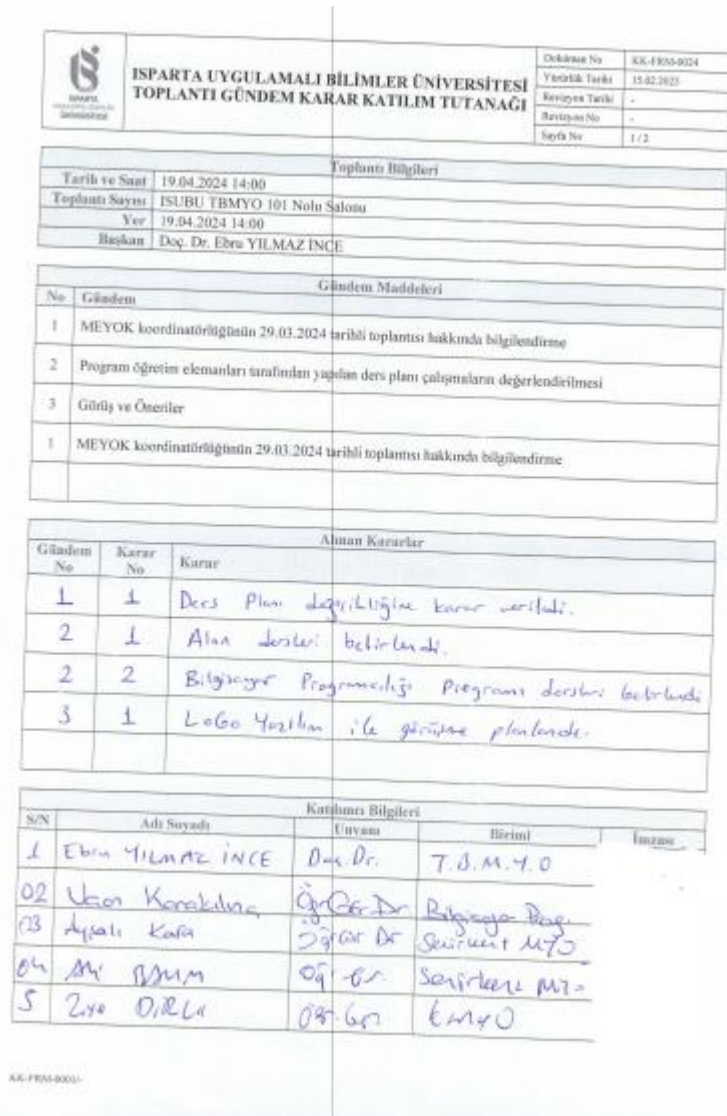 ISPARTA UYGULAMALI BİLİMLER ÜNİVERSİTESİ
TOPLANTI GÜNDEM KARAR KATILIM TUTANAĞI
Doküman No KK-FRM-0024
Yürürlük Tarihi 15.02.2023
Revizyon Tarihi -
Revizyon No -
Sayfa No 1 / 2
ISPARTA
ÜNİVERSİTESİ
Toplantı Bilgileri
Tarih ve Saat 19.04.2024 14:00
Toplantı Sayısı ISUBU TBMYO 101 Nolu Salonu
Yer 19.04.2024 14:00
Başkan Doç. Dr. Ebru YILMAZ İNCE
Gündem Maddeleri
No Gündem
1 MEYOK koordinatörlüğünün 29.03.2024 tarihli toplantısı hakkında bilgilendirme
2 Program öğretim elemanları tarafından yapılan ders planı çalışmaların değerlendirilmesi
3 Görüş ve Öneriler
1 MEYOK koordinatörlüğünün 29.03.2024 tarihli toplantısı hakkında bilgilendirme
Alınan Kararlar
Gündem No Karar No Karar
1 1 Ders Planı değişikliğine karar verildi.
2 1 Alan dersleri belirlendi.
2 2 Bilgisayar Programcılığı Programı dersleri belirlendi
3 1 LOGO Yazılım ile görüşme planlandı.
Katılımcı Bilgileri
S/N Adı Soyadı Unvanı Birimi İmzası
1 Ebru YILMAZ İNCE Doç. Dr. T.B.M.Y.O
02 Öğr Gör Dr Bilgisayar Prog.
03 Kara Öğr Gör Dr Senirkent MYO
04 Öğr Gr. Senirkent MYO
5 Öğr. Gör